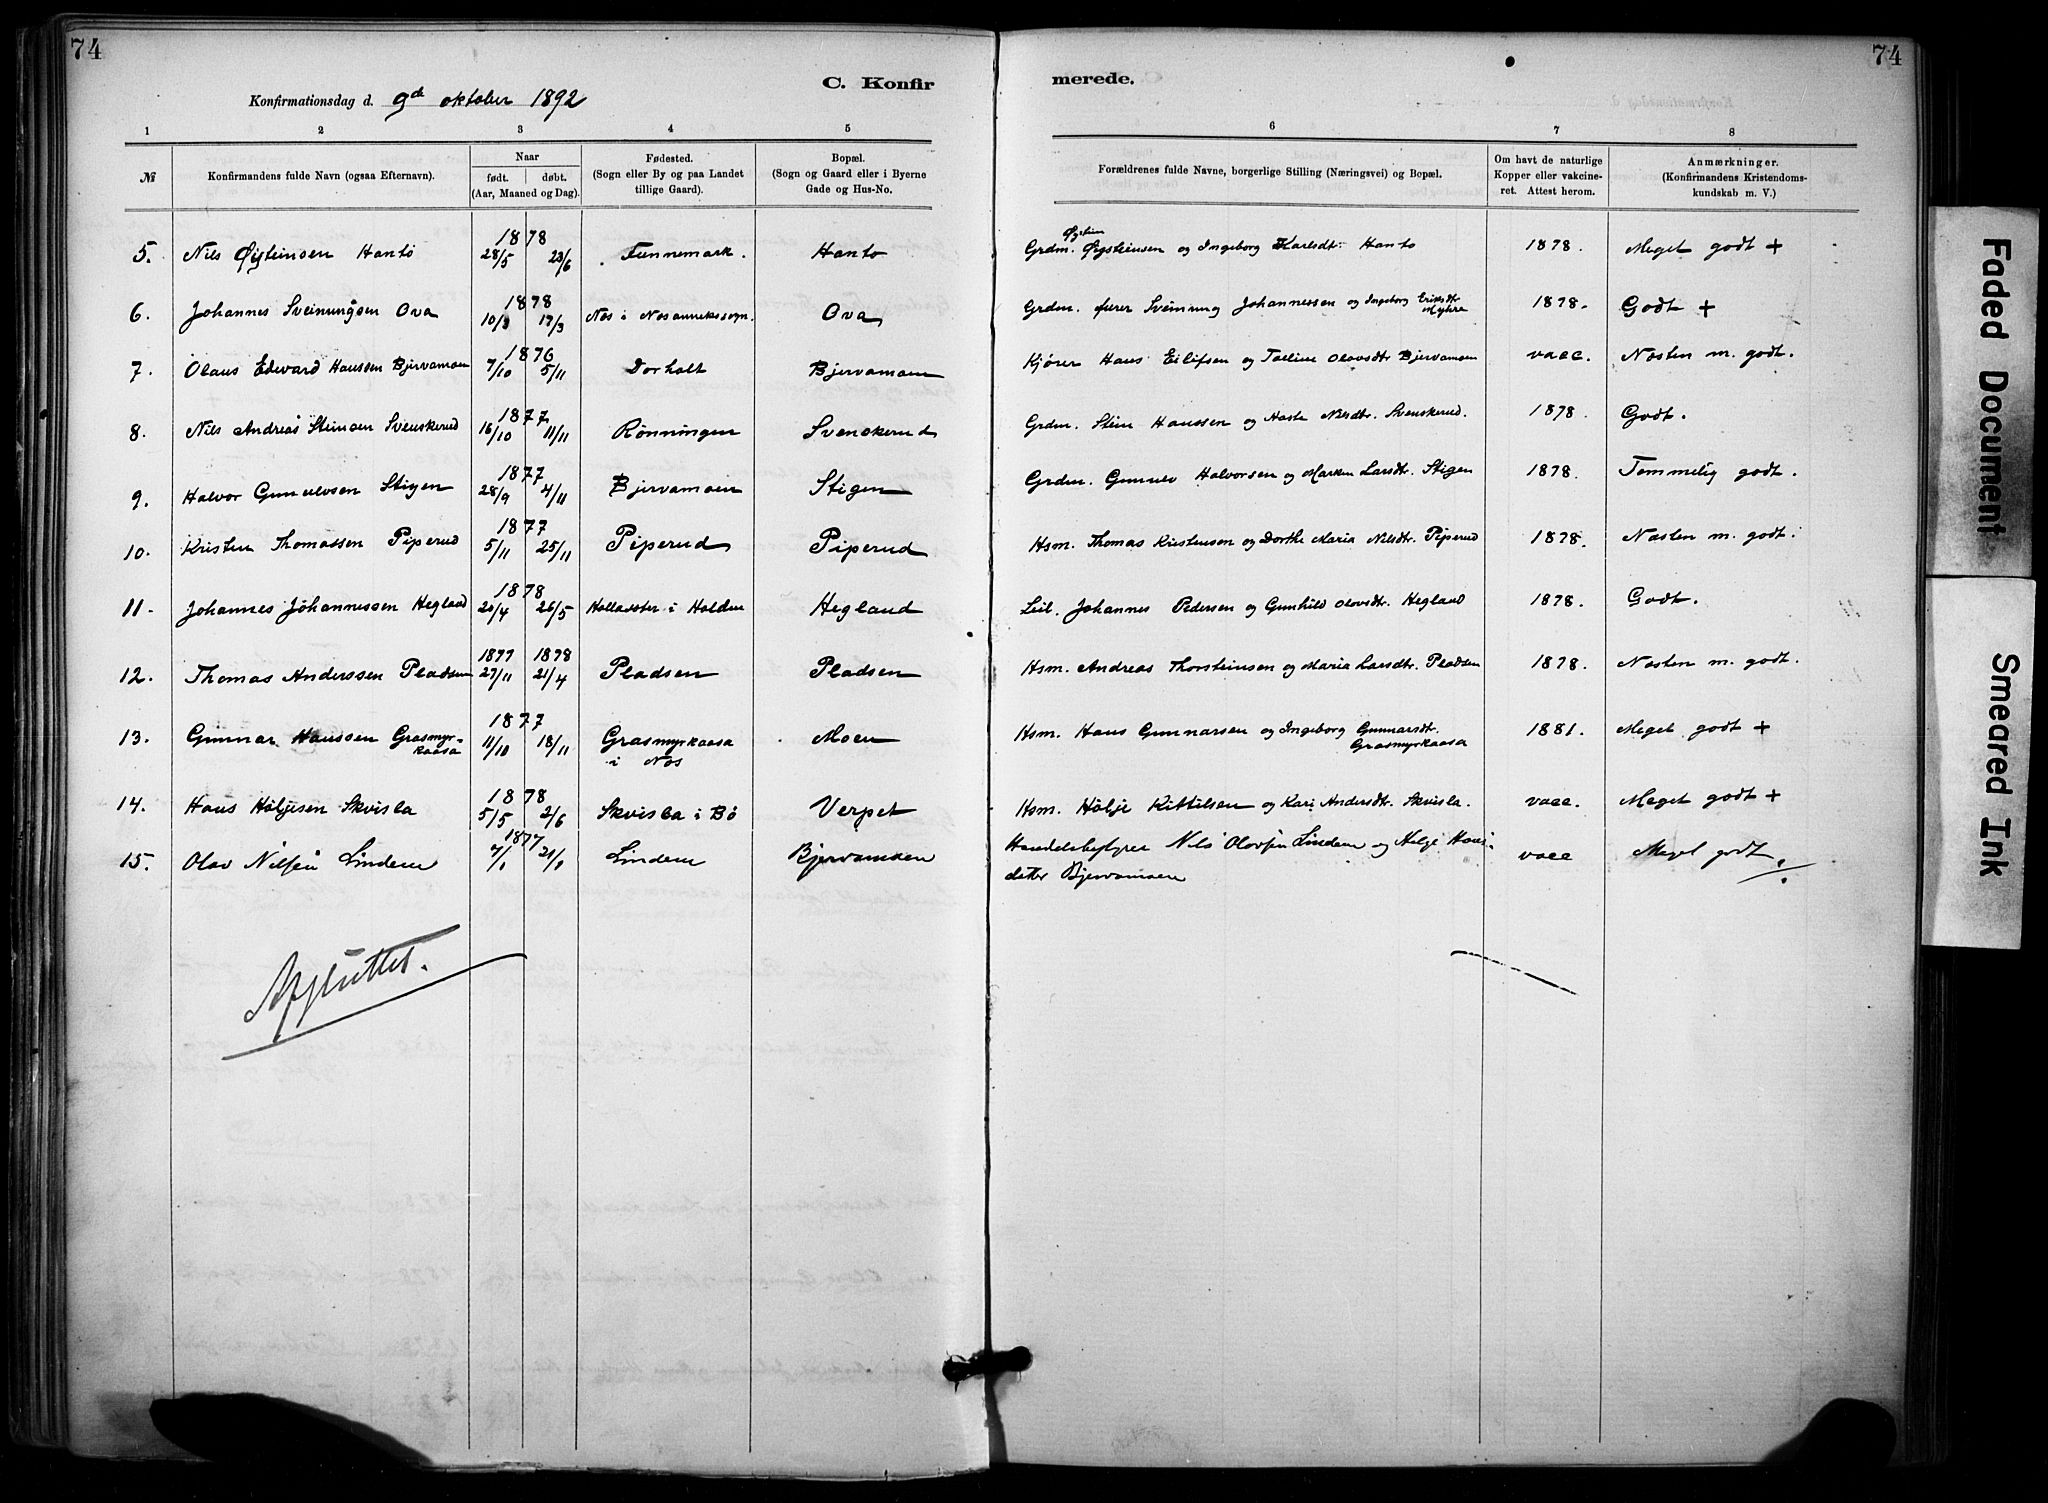 74
74
C. Konfir
merede.
Konfirmationsdag d. 9de oktober 1892
1 2 3 4 5 6 7 8
№ Konfirmandens fulde Navn (ogsaa Efternavn). Naar født. døbt. (Aar, Maaned og Dag). Fødested. (Sogn eller By og paa Landet tillige Gaard). Bopæl. (Sogn og Gaard eller i Byerne Gade og Hus-No. Forældrenes fulde Navne, borgerlige Stilling (Næringsvei) og Bopæl. Om havt de naturlige Kopper eller vakcineret. Attest herom. Anmærkninger. (Konfirmandens Kristendomskundskab m. V.)
5. Nils Øisteinsen Hantò 1878 28/5 23/6 Funnemark. Hanto Grdm. Øystein Øysteinsen og Ingeborg Karlsdt. Hanto 1878. Meget godt +
6. Johannes Sveinungsen Ova 1878 10/3 17/3 Nos i Nosannekssogn. Ova Grdm. Sveinung Johannessen og Ingeborg Eriksdtr Myhre 1878. Godt +
7. Olaus Edward Hanssen Bjervamoen 1876 7/10 5/11 Dorholt Bjervamoen Kjører Hans Eilifsen og Torline Olavsdtr Bjervamoen vacc. Nosten m. godt.
8. Nils Andreas Steinsen Svenskerud 1877 16/10 11/11 Rønningen Svenskerud Grdm. Stein Hanssen og Aaste Nilsdtr. Svenskerud. 1878. Godt.
9. Halvor Gunulvsen Stigen 1877 28/9 4/11 Bjervamoen Stigen Grdm. Gunulv Halvorsen og Maren Larsdtr. Stigen 1878. Temmelig godt.
10. Kristen Thomassen Piperud 1877 5/11 25/11 Piperud Piperud Hsm. Thomas Kristensen og Dorthe Maria Nilsdtr. Piperud 1878. Nosten m. godt.
11. Johannes Johannessen Hegland 1878 20/4 26/5 Hollavster i Holden Hegland Leil. Johannes Pedersen og Gunhild Olovsdtr. Hegland 1878. Godt.
12. Thomas Anderssen Pladsen 1877 27/11 1878 21/4 Pladsen Pladsen Hsm. Andreas Thorsteinsen og Maria Larsdtr. Pladsen 1878. Nosten m. godt.
13. Gunnar Hanssen Grasmyr-
kaasa 1877 11/10 18/11 Grasmyrkaasa i Nos Moen Hsm. Hans Gunnarsen og Ingeborg Gunnarsdtr. Grasmyrkaasa 1881. Meget godt +
14. Hans Høljesen Skvisla 1878 5/5 2/6 Skvisla i Bö Verpet Hsm. Hölje Kittilsen og Kari Andersdtr. Skvisla. vacc. Meget godt +
15. Olav Nilsen Lindem 1877 7/1 21/1 Lindem Bjervamoen Handelsbestyrer Nils Olavsen Lindem og Helge Hans-
datter Bjervamoen vacc Meget godt
Afsluttet.
Faded Document
Smeared Ink